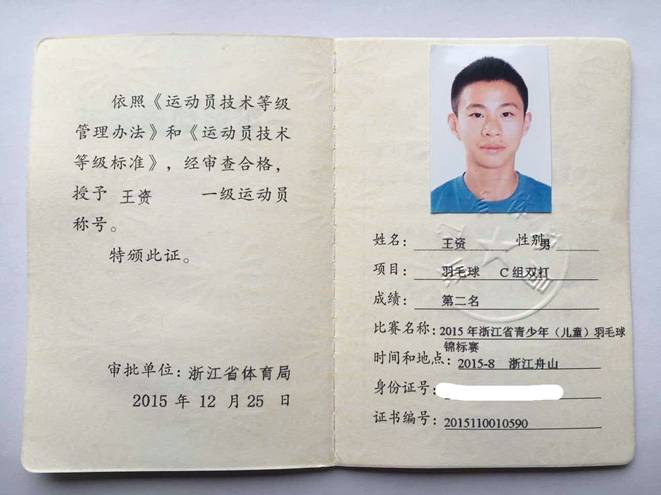 依照《运动员技术等级
管理办法》和《运动员技术
等级标准》，经审查合格，
授予 王资 一级运动员
称号。
特颁此证。
审批单位：浙江省体育局
2015 年 12 月 25 日
姓名： 王资 性别男
项目： 羽毛球 C 组双打
成绩： 第二名
比赛名称：2015 年浙江省青少年（儿童）羽毛球
锦标赛
时间和地点：2015-8 浙江舟山
身份证号：
证书编号：2015110010590